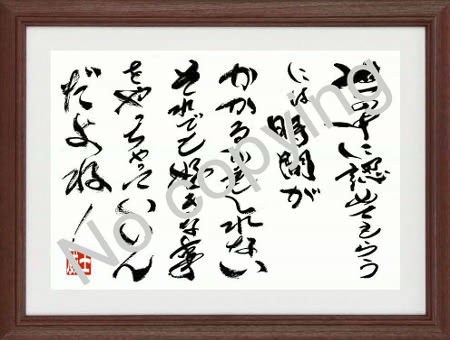 世の中に認めてもらう
には時間が
かかるかもしれない
それでも好きな事
をやっちゃっていいん
だよね！
No copying